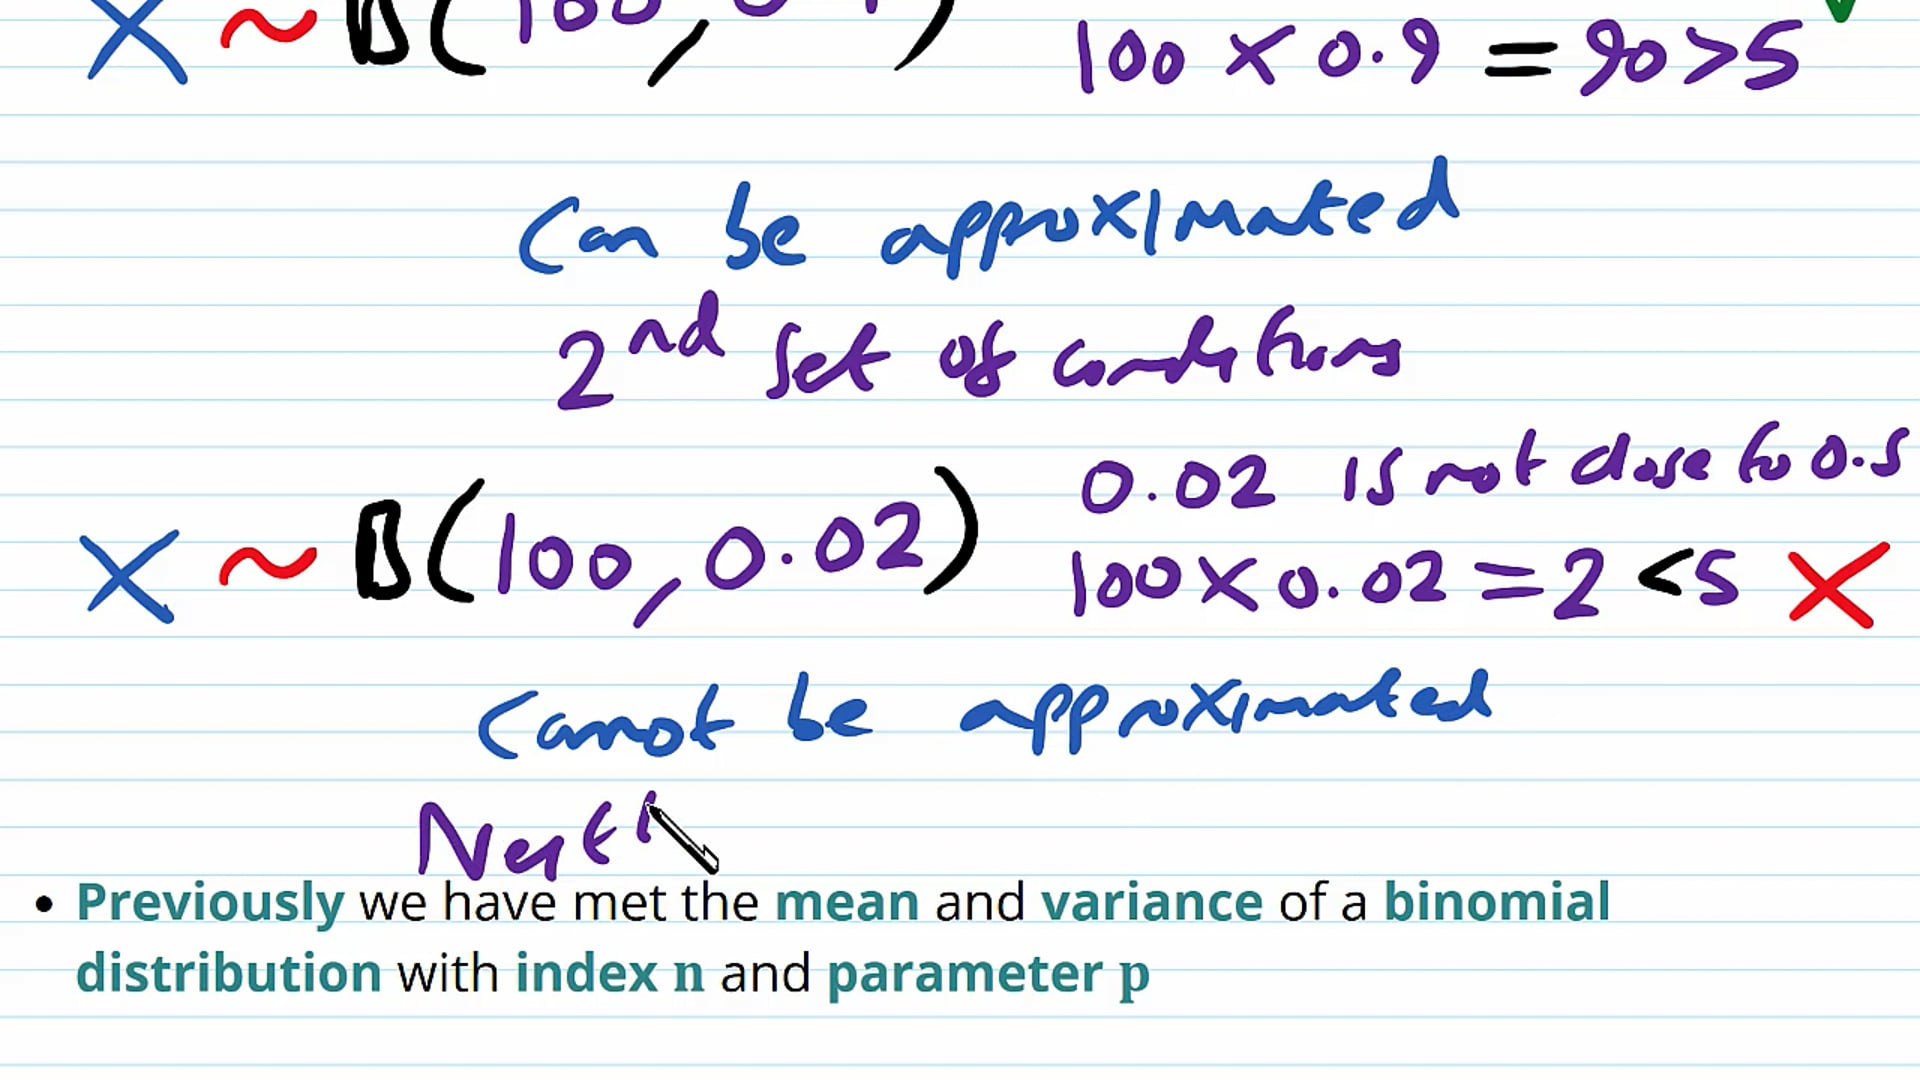 X ~ B(100, 0.1) 100 × 0.9 = 90 > 5
Can be approximated
2nd set of conditions
0.02 is not close to 0.5
X ~ B(100, 0.02) 100 × 0.02 = 2 < 5 ×
Cannot be approximated
• Previously we have met the mean and variance of a binomial
distribution with index n and parameter p